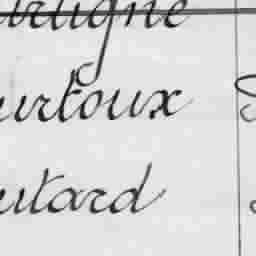 urtigne
urtoux
utard